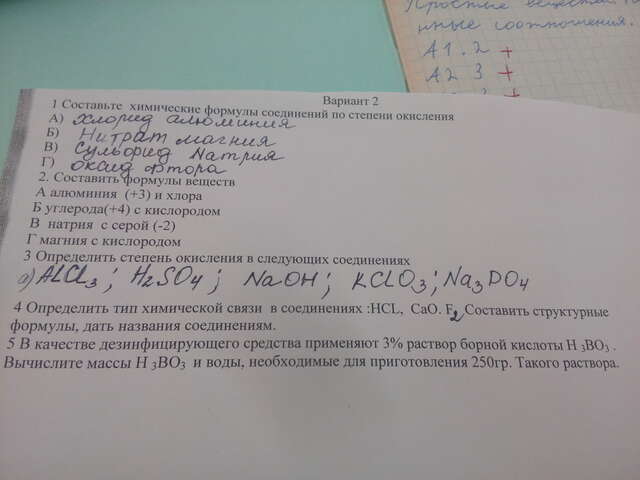 Простые вещества
ные соотношения.
А1. 2 +
А2 3 +
3 +
Вариант 2
1 Составьте химические формулы соединений по степени окисления
А) хлорид алюминия
Б) Нитрат магния
В) Сульфид Натрия
Г) оксид Фтора
2. Составить формулы веществ
А алюминия (+3) и хлора
Б углерода(+4) с кислородом
В натрия с серой (-2)
Г магния с кислородом
3 Определить степень окисления в следующих соединениях
а) AlCl3; H2SO4; NaOH; KClO3; Na3PO4
4 Определить тип химической связи в соединениях :HCL, CaO. F2 Составить структурные
формулы, дать названия соединениям.
5 В качестве дезинфицирующего средства применяют 3% раствор борной кислоты H 3BO3 .
Вычислите массы H 3BO3 и воды, необходимые для приготовления 250гр. Такого раствора.